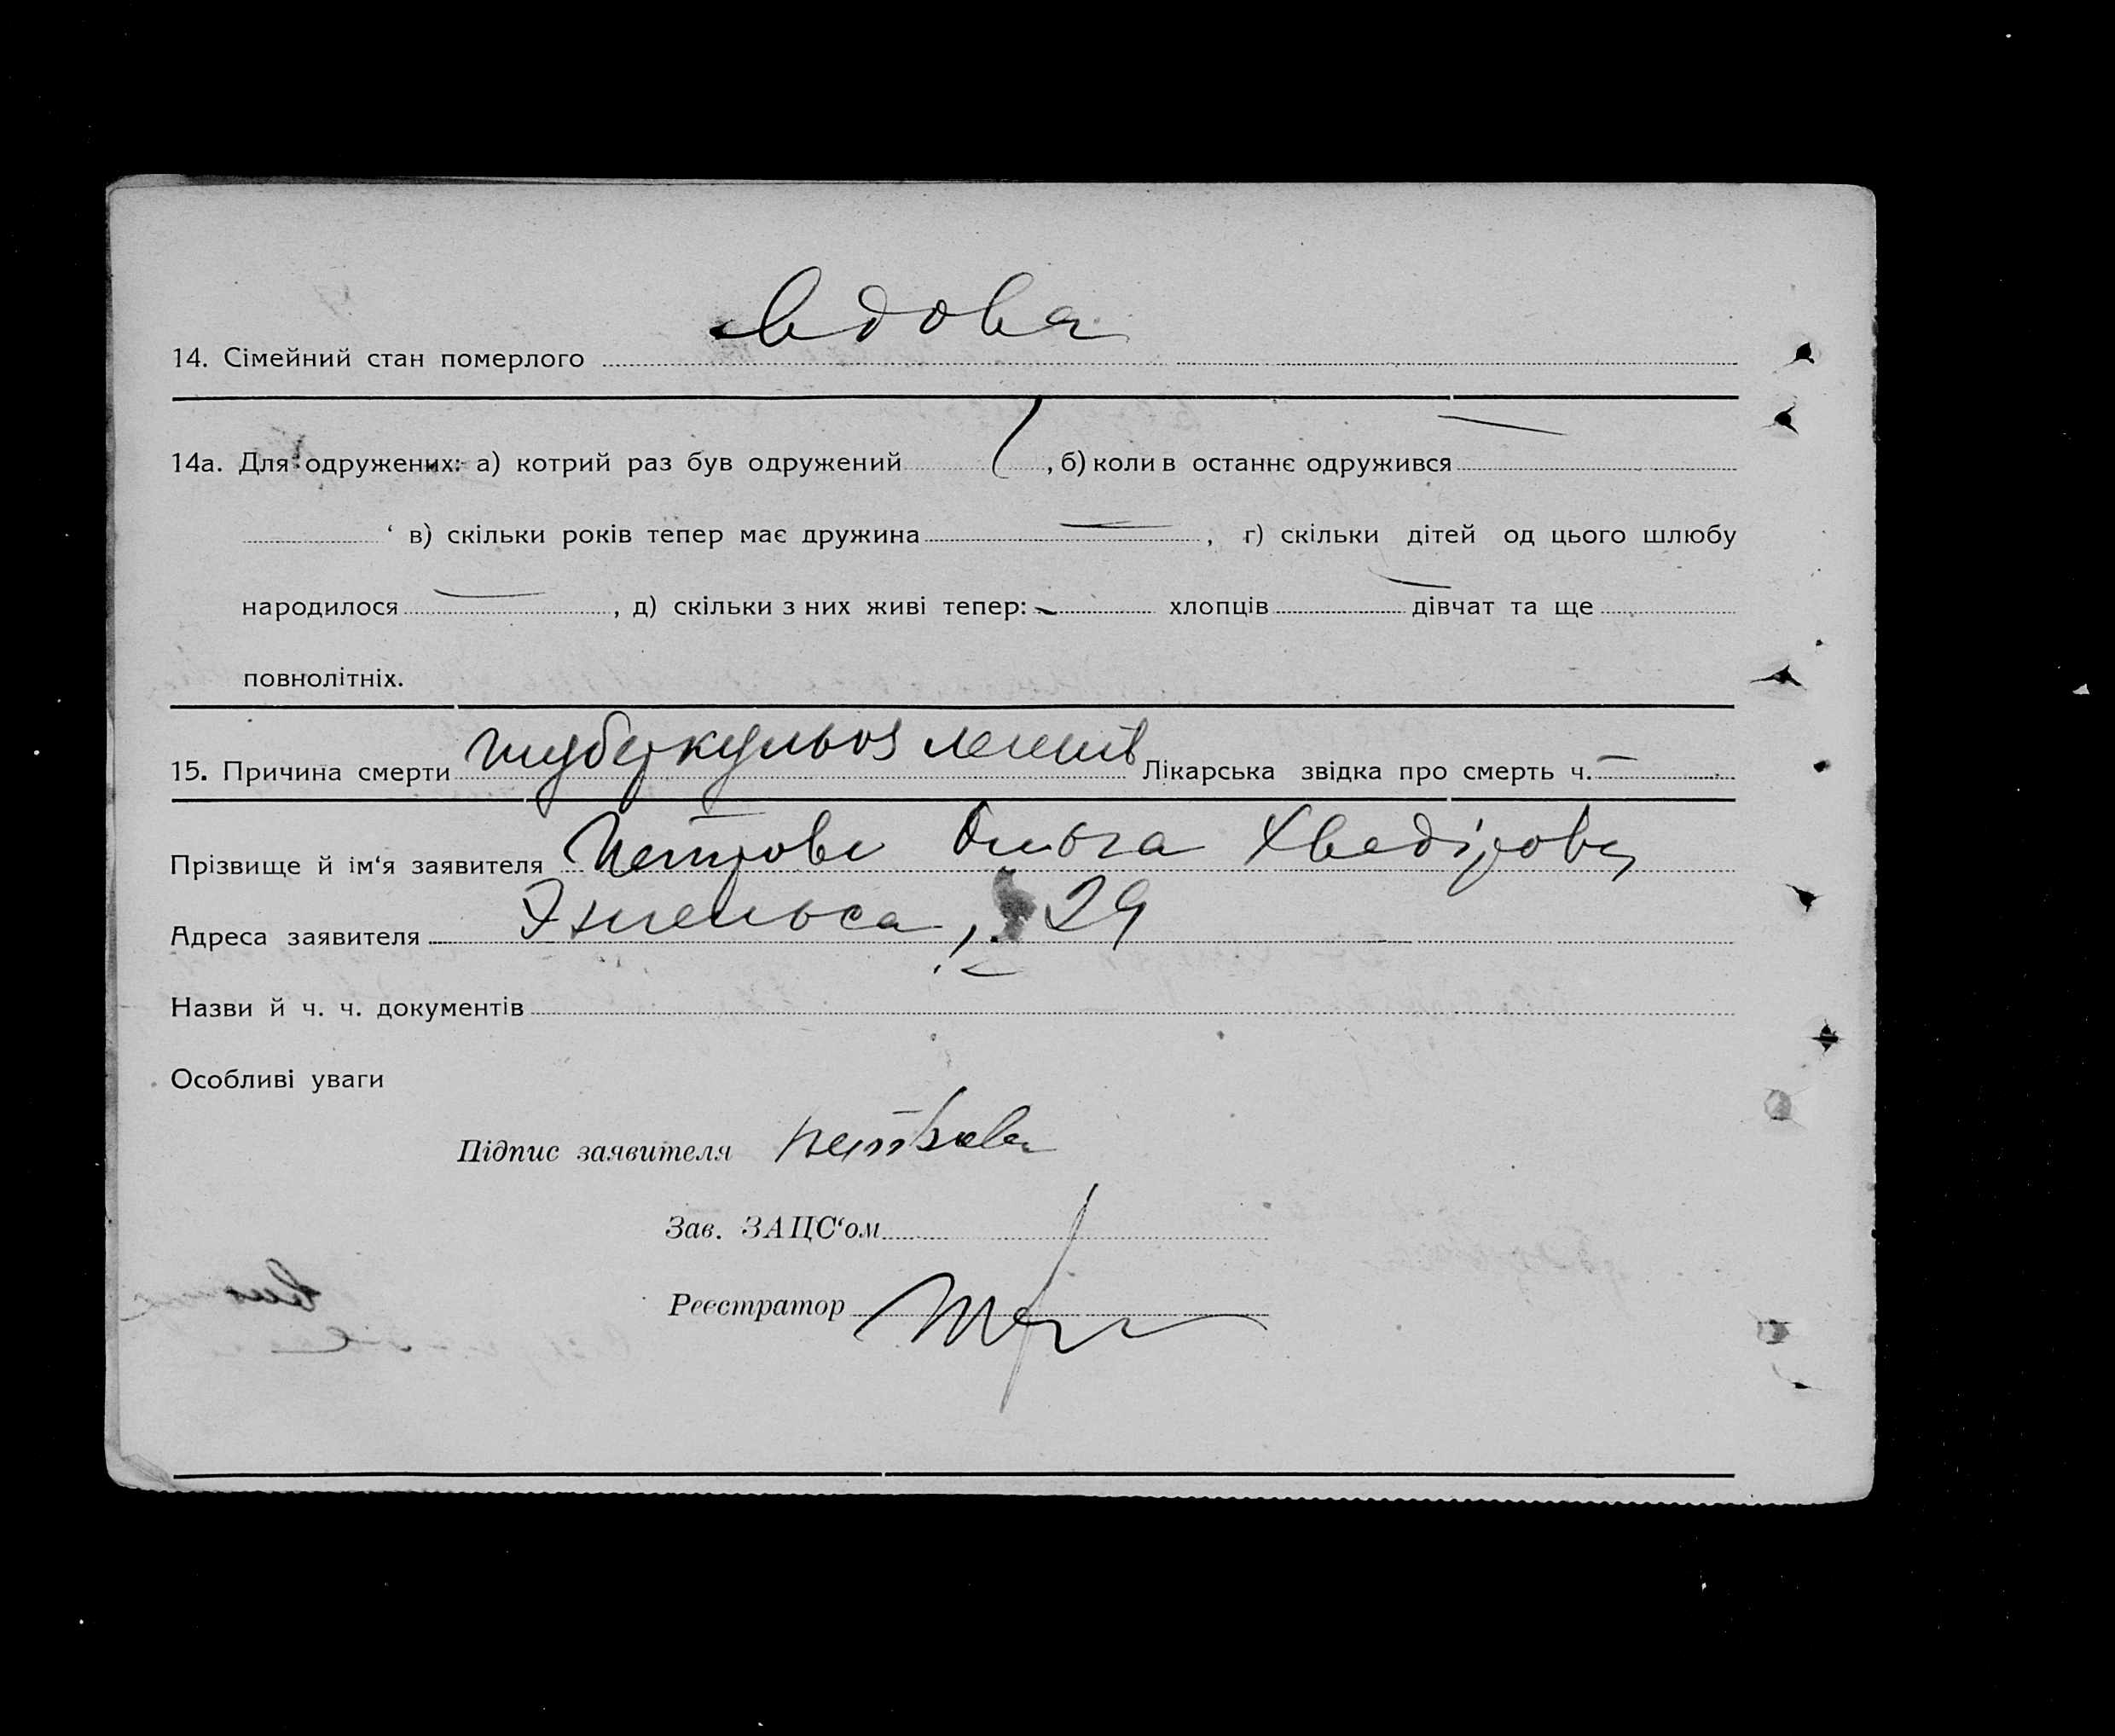 вдова
14. Сімейний стан померлого
14а. Для одружених: а) котрий раз був одружений , б) коли в останнє одружився —
‘ в) скільки років тепер має дружина — , г) скільки дітей од цього шлюбу
народилося — , д) скільки з них живі тепер: — хлопців — дівчат та ще
повнолітніх.
15. Причина смерти туберкульоз легенів Лікарська звідка про смерть ч. —
Прізвище й ім‘я заявителя Петрова Ольга Хведірова
Адреса заявителя Энгельса, 29
Назви й ч. ч. документів
Особливі уваги
Підпис заявителя Петрова
Зав. ЗАЦС‘ом
Реєстратор